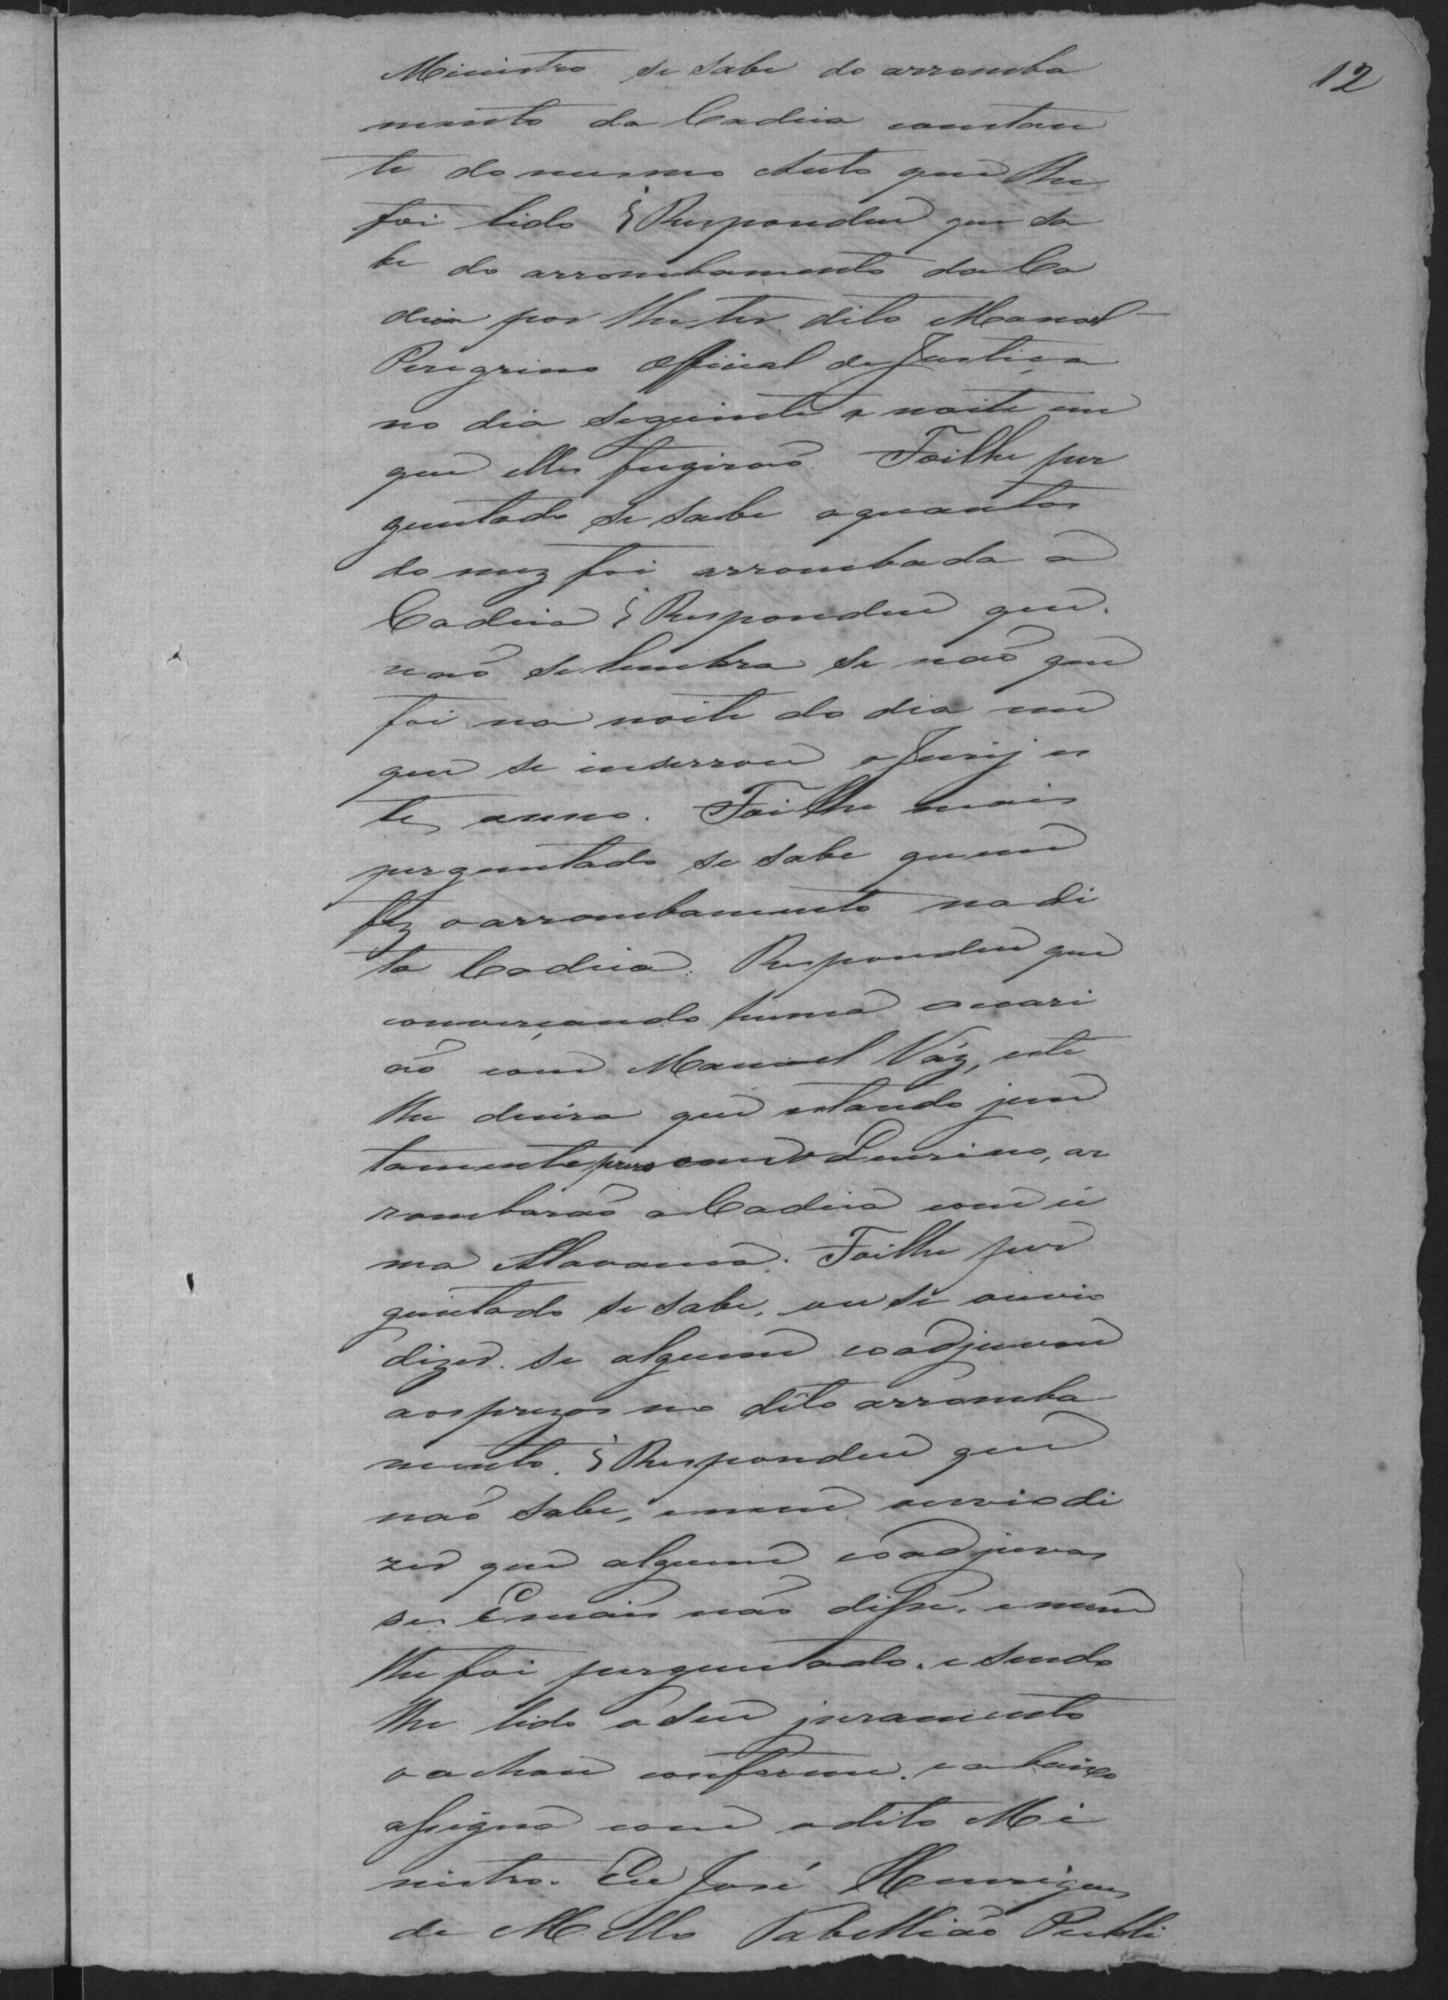 12
Ministro se sabe do arromba
mento da Cadeia constan
te do mesmo Auto que lhe
foi lido? Respondeu que sa
be do arrombamento da Ca
deia por lhe ter dito Manoel
Peregrino Official de Justiça
no dia seguinte a noite em
que elles fugiraõ. Foilhe per
guntado se sabe a quantos
do mez foi arrombada a
Cadeia? Respondeu que
naõ se lembra se naõ que
foi na noite do dia em
que se inserrou o Jurij es
te anno. Foi lhe mais
perguntado se sabe quem
fez o arrombamento na di
ta Cadeia. Respondeu que
converçando huma
com Manoel Váz, este
lhe dicera que estando jun
tamente prezo com Quirino, ar
rombaraõ a Cadeia com u
ma Alavanca. Foilhe per
guntado se sabe, ou se ouvio
dizer se alguem coadjuvou
aos prezos no dito arromba
mento? Respondeu que
naõ sabe, e nem ouvio di
zer que alguem coadjuvas
se. E mais naõ disse, e nem
lhe foi perguntado. e sendo
lhe lido o seu juramento
o achou conforme. e abaixo
assigna com o dito Mi
nistro. Eu José Henriques
de Mello Tabelliaõ Publi